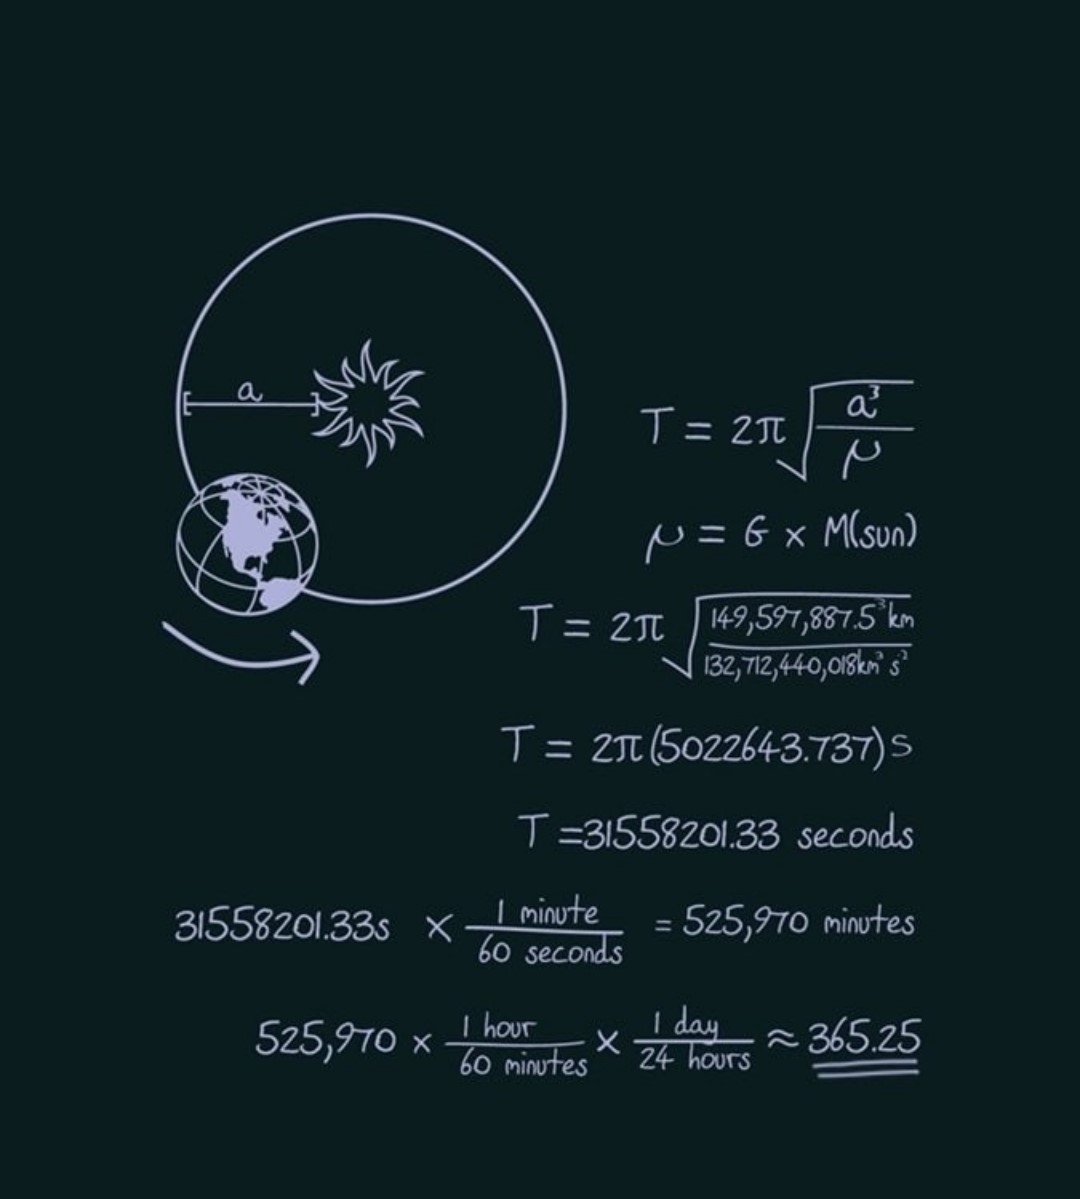 a
T = 2π√(a³/μ)
μ = G × M(sun)
T = 2π√(149,597,887.5³km/132,712,440,018km³ s²)
T = 2π(5022643.737)s
T =31558201.33 seconds
31558201.33s × 1 minute/60 seconds = 525,970 minutes
525,970 × 1 hour/60 minutes × 1 day/24 hours ≈ 365.25